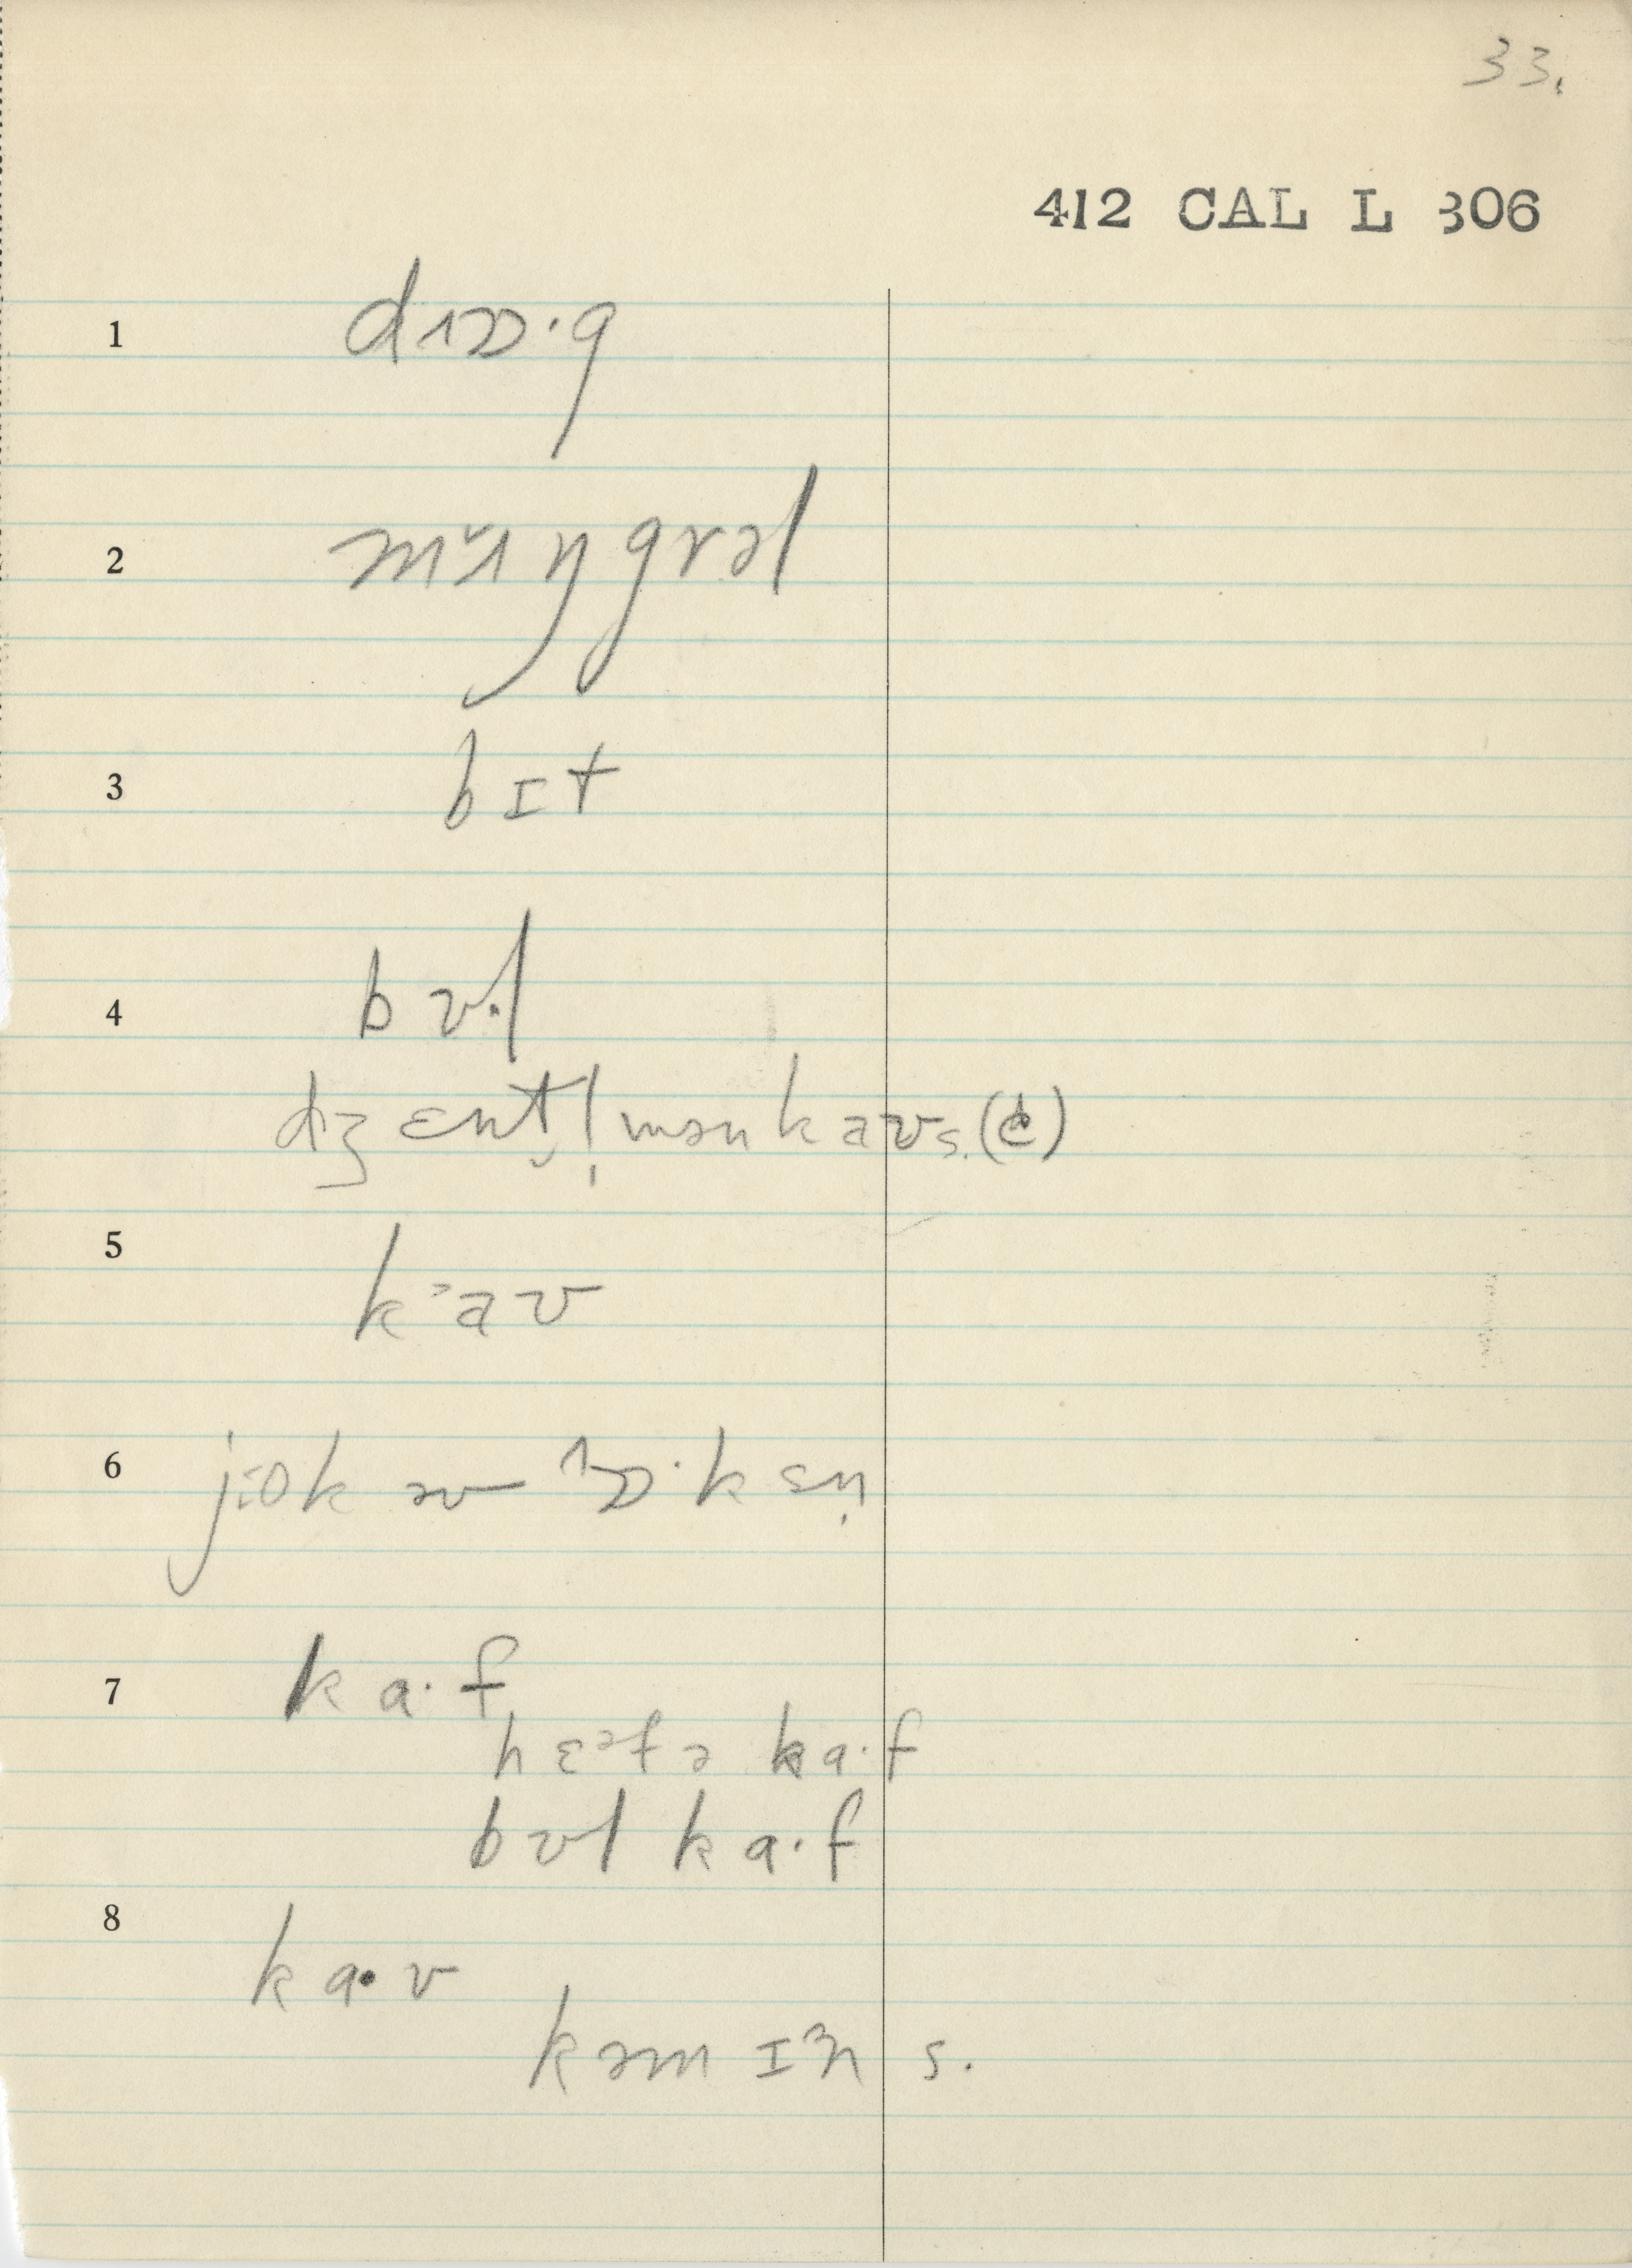 33.
412 CAL L 306
1 dɒɒ·g
2 mʌ̆ŋgrəl
3 bɪt
4 bʊ·l
dʒɛnt̬l̩mən kaʊs. (c)
5 kᵊaʊ
6 jiok əv ɒ·ksn̩
7 ka·f
hɛᵊfə ka·f
bʊl ka·f
8 ka·v
kəmɪn s.